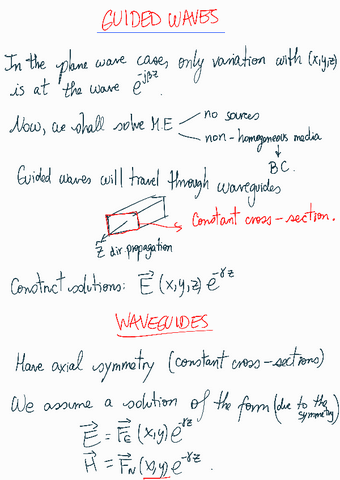 GUIDED WAVES
In the plane wave cases, only variation with (x,y,z)
is at the wave e^-jβz.
Now, we shall solve M.E
no sources
non-homogeneous media
B.C.
Guided waves will travel through waveguides
Constant cross-section.
z dir. propagation
Construct solutions: E⃗ (x,y,z) e^-γz
WAVEGUIDES
Have axial symmetry (constant cross-sections)
We assume a solution of the form (due to the symmetry)
E⃗ = F⃗E (x,y) e^-γz
H⃗ = F⃗H (x,y) e^-γz.